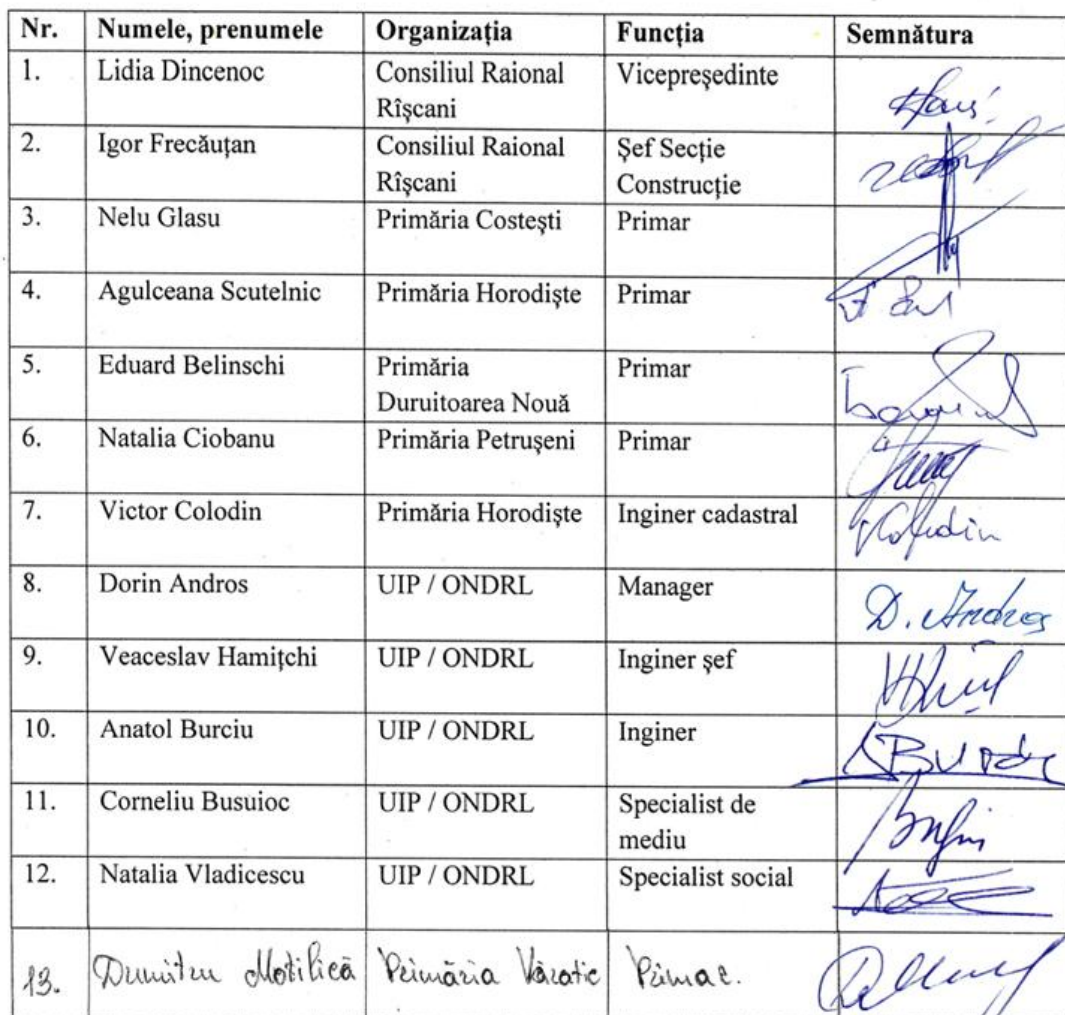 Nr. Numele, prenumele Organizația Funcția Semnătura
1. Lidia Dincenoc Consiliul Raional Rîșcani Vicepreședinte
2. Igor Frecăuțan Consiliul Raional Rîșcani Șef Secție Construcție
3. Nelu Glasu Primăria Costești Primar
4. Agulceana Scutelnic Primăria Horodiște Primar
5. Eduard Belinschi Primăria Duruitoarea Nouă Primar
6. Natalia Ciobanu Primăria Petrușeni Primar
7. Victor Colodin Primăria Horodiște Inginer cadastral
8. Dorin Andros UIP / ONDRL Manager D. Andros
9. Veaceslav Hamițchi UIP / ONDRL Inginer șef
10. Anatol Burciu UIP / ONDRL Inginer
11. Corneliu Busuioc UIP / ONDRL Specialist de mediu
12. Natalia Vladicescu UIP / ONDRL Specialist social
13. Dumitru Motilică Primăria Văratic Primar.